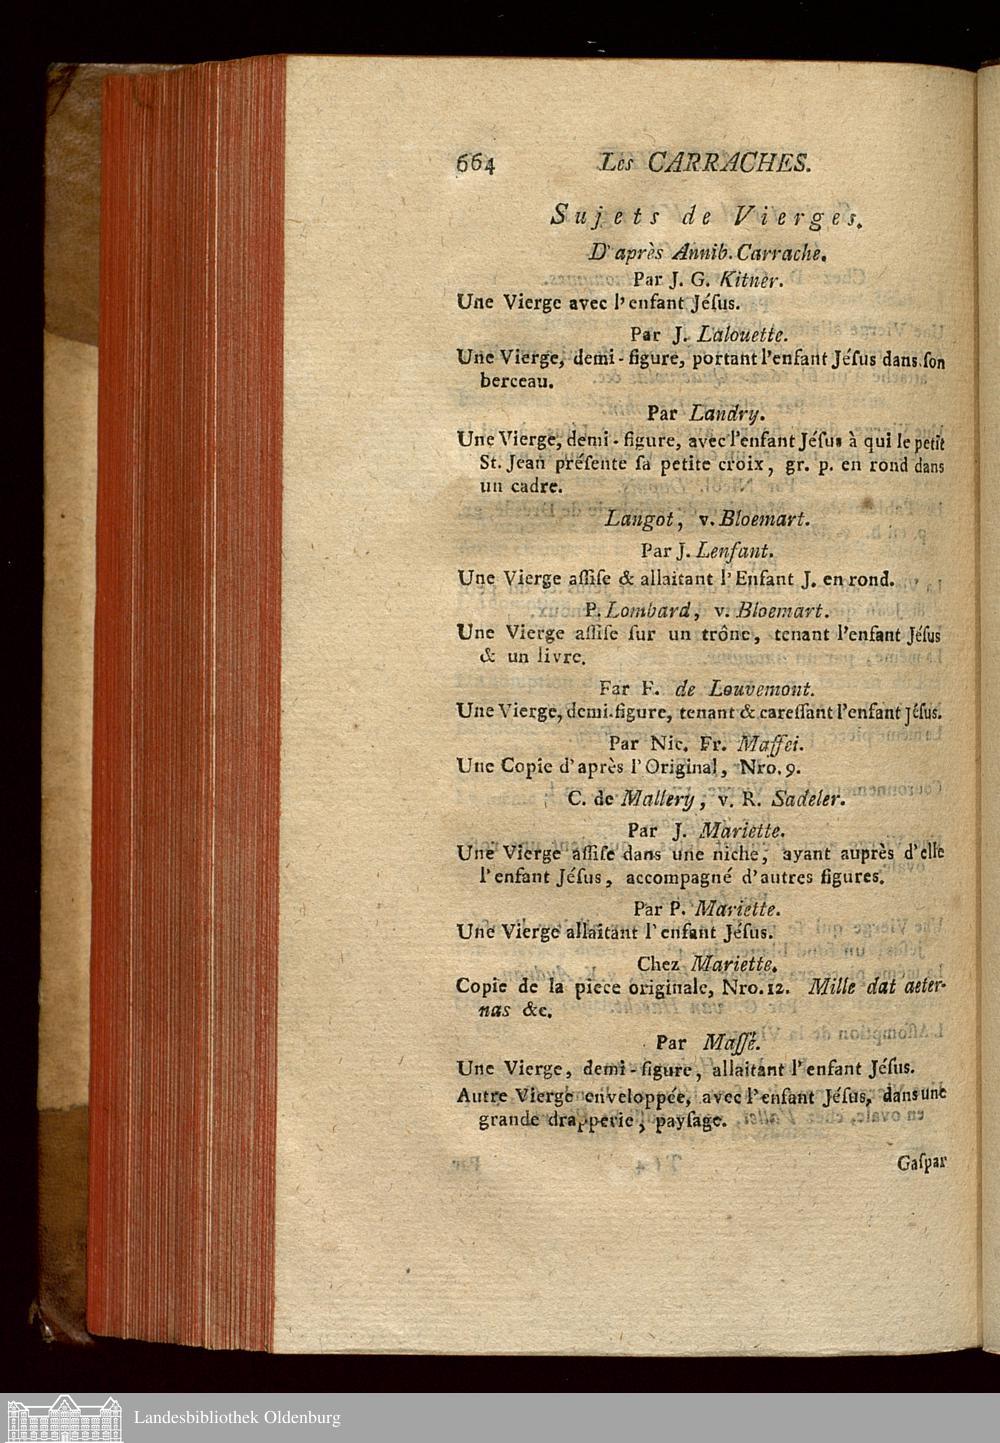 664 Les CARRACHES.
Sujets de Vierges.
D'après Annib. Carrache.
Par J. G. Kitner.
Une Vierge avec l'enfant Jéſus.
Par J. Lalouette.
Une Vierge, demi-figure, portant l'enfant Jéſus dans ſon
berceau.
Par Landry.
Une Vierge, demi-figure, avec l'enfant Jéſus à qui le petit
St. Jean préſente ſa petite croix, gr. p. en rond dans
un cadre.
Langot, v. Bloemart.
Par J. Lenfant.
Une Vierge aſſiſe & allaitant l'Enfant J. en rond.
P. Lombard, v. Bloemart.
Une Vierge aſſiſe ſur un trône, tenant l'enfant Jéſus
& un livre.
Par F. de Louvemont.
Une Vierge, demi-figure, tenant & careſſant l'enfant Jéſus.
Par Nic. Fr. Maffei.
Une Copie d'après l'Original, Nro. 9.
C. de Mallery, v. R. Sadeler.
Par J. Mariette.
Une Vierge aſſiſe dans une niche, ayant auprès d'elle
l'enfant Jéſus, accompagné d'autres figures.
Par P. Mariette.
Une Vierge allaitant l'enfant Jéſus.
Chez Mariette.
Copie de la piece originale, Nro. 12. Mille dat aeter-
nas &c.
Par Maſſé.
Une Vierge, demi-figure, allaitant l'enfant Jéſus.
Autre Vierge enveloppée, avec l'enfant Jéſus, dans une
grande drapperie, payſage.
Gaſpar
Landesbibliothek Oldenburg